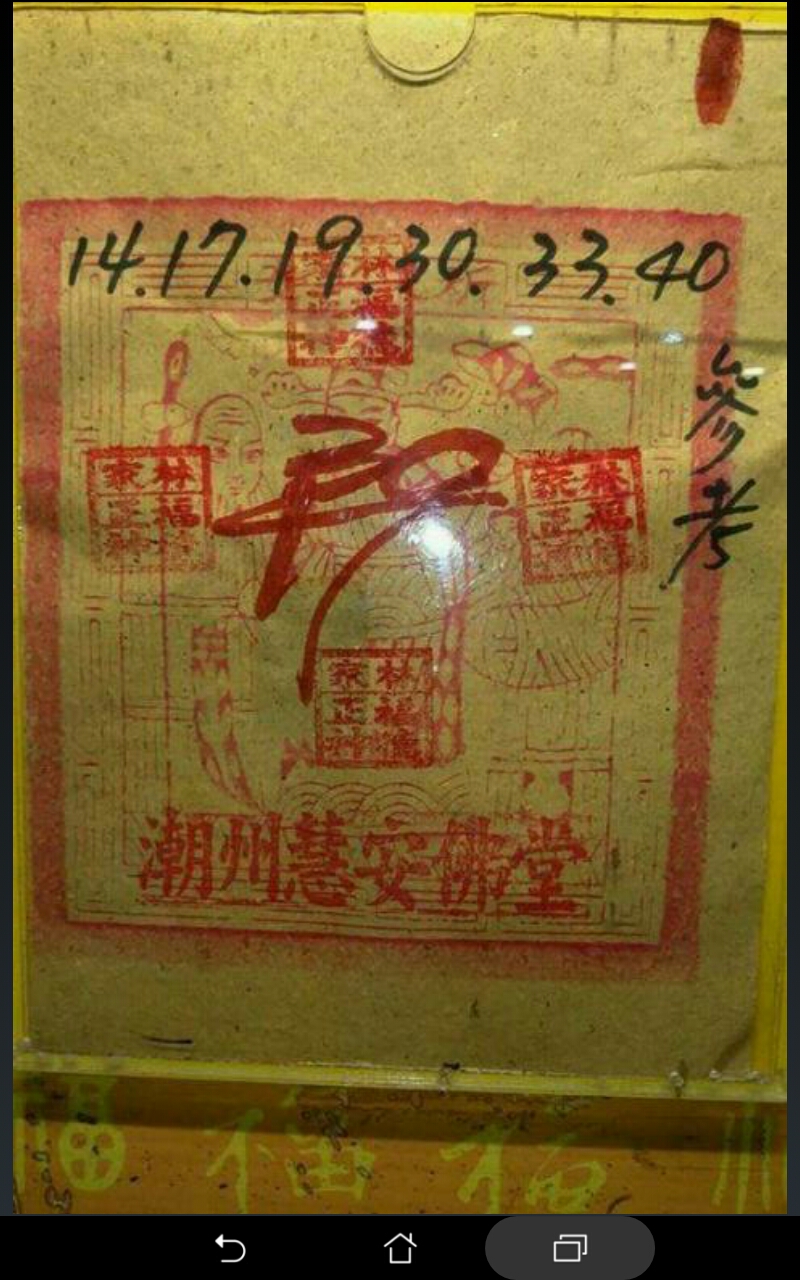 14.17.19.30.33.40
參考
林福德
家正神
林福德
家正神
林福德
家正神
林福德
家正神
潮州慧安佛堂
福 福 福